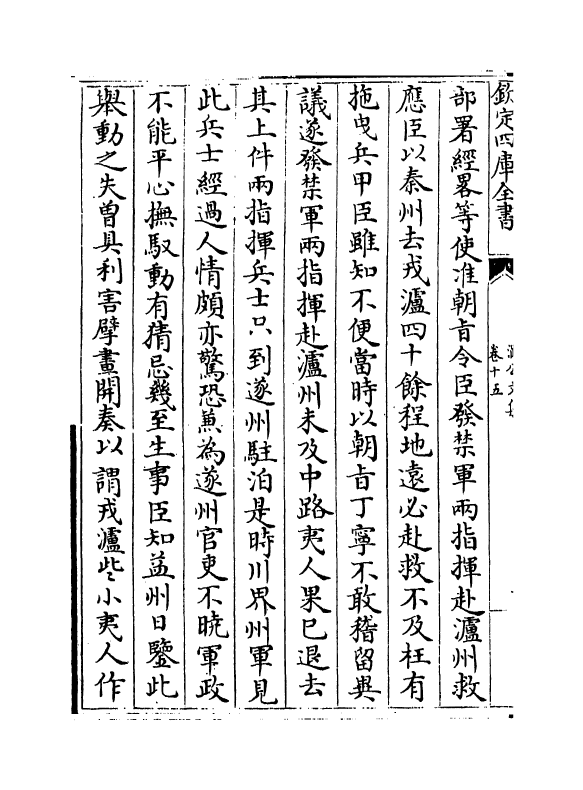 欽定四庫全書
潞公文集
卷十五
部署經畧等使准朝㫖令臣發禁軍兩指揮赴瀘州救
應臣以秦州去戎瀘四十餘程地遠必赴救不及枉有
拖曳兵甲臣雖知不便當時以朝㫖丁寧不敢稽留異
議遂發禁軍兩指揮赴瀘州未及中路夷人果已退去
其上件兩指揮兵士只到遂州駐泊是時川界州軍見
此兵士經過人情頗亦驚恐兼為遂州官吏不曉軍政
不能平心撫馭動有猜忌幾至生事臣知益州日鑒此
舉動之失曽具利害擘畫開奏以謂戎瀘些小夷人作